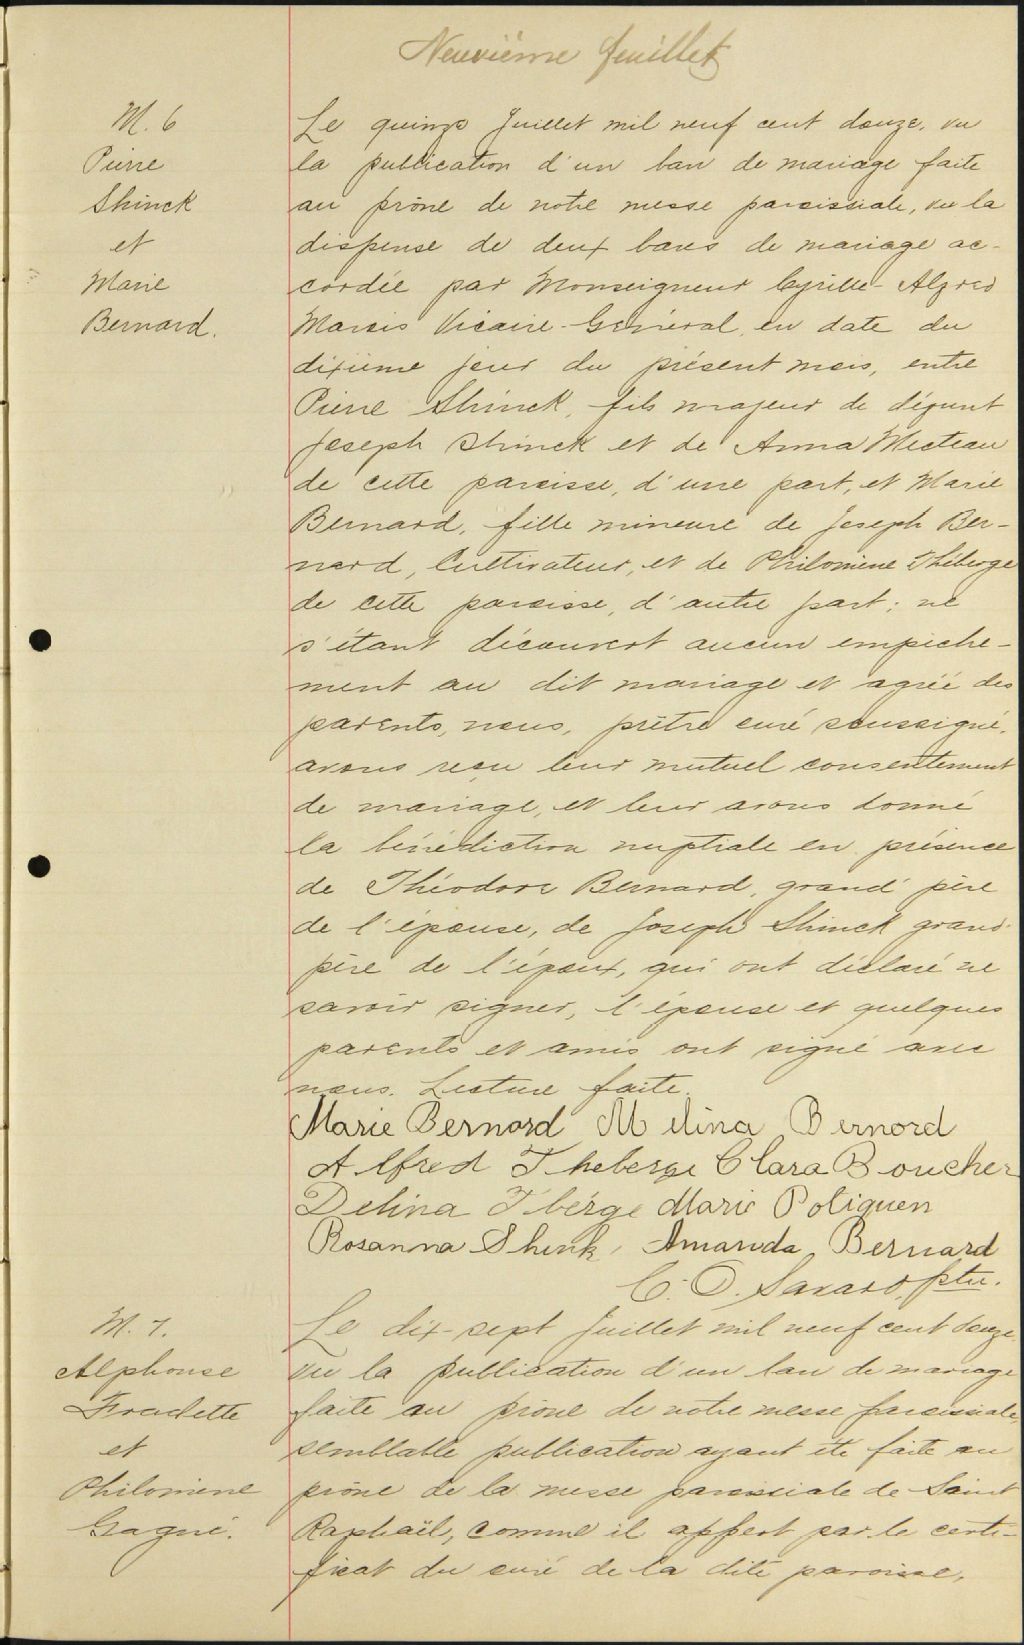 Neuvième feuillet
M. 6
Pierre
Shinck
et
Marie
Bernard.
Le quinze Juillet mil neuf cent douze, vu
la publication d'un ban de mariage faite
au prône de notre messe paroissiale, vu la
dispense de deux bans de mariage ac-
cordée par Monseigneur Cyrille-Alfred
Marois Vicaire-Général, en date du
dixième jour du présent mois, entre
Pierre Shinck, fils majeur de défunt
Joseph Shinck et de Anna Mecteau
de cette paroisse, d'une part, et Marie
Bernard, fille mineure de Joseph Ber-
nard, Cultivateur, et de Philomène Théberge
de cette paroisse, d'autre part; ne
s'étant découvert aucun empêche-
ment au dit mariage et agréé des
parents, nous, prêtre curé soussigné,
avons reçu leur mutuel consentement
de mariage, et leur avons donné
la bénédiction nuptiale en présence
de Théodore Bernard, grand'père
de l'épouse, de Joseph Shinck grand'
père de l'époux, qui ont déclaré ne
savoir signer, l'épouse et quelques
parents et amis ont signé avec
nous. Lecture faite.
Marie Bernard Melina Bernard
Alfred Theberge Clara Boucher
Delina Tberge Marie Poliquen
Rosanna Shink, Amanda Bernard
C. O. Savard, ptre.
M. 7.
Alphonse
Fradette
et
Philomène
Gagné.
Le dix-sept Juillet mil neuf cent douze,
vu la publication d'un ban de mariage
faite au prône de notre messe paroissiale,
semblable publication ayant été faite au
prône de la messe paroissiale de Saint
Raphaël, comme il appert par le certi-
ficat du curé de la dite paroisse,